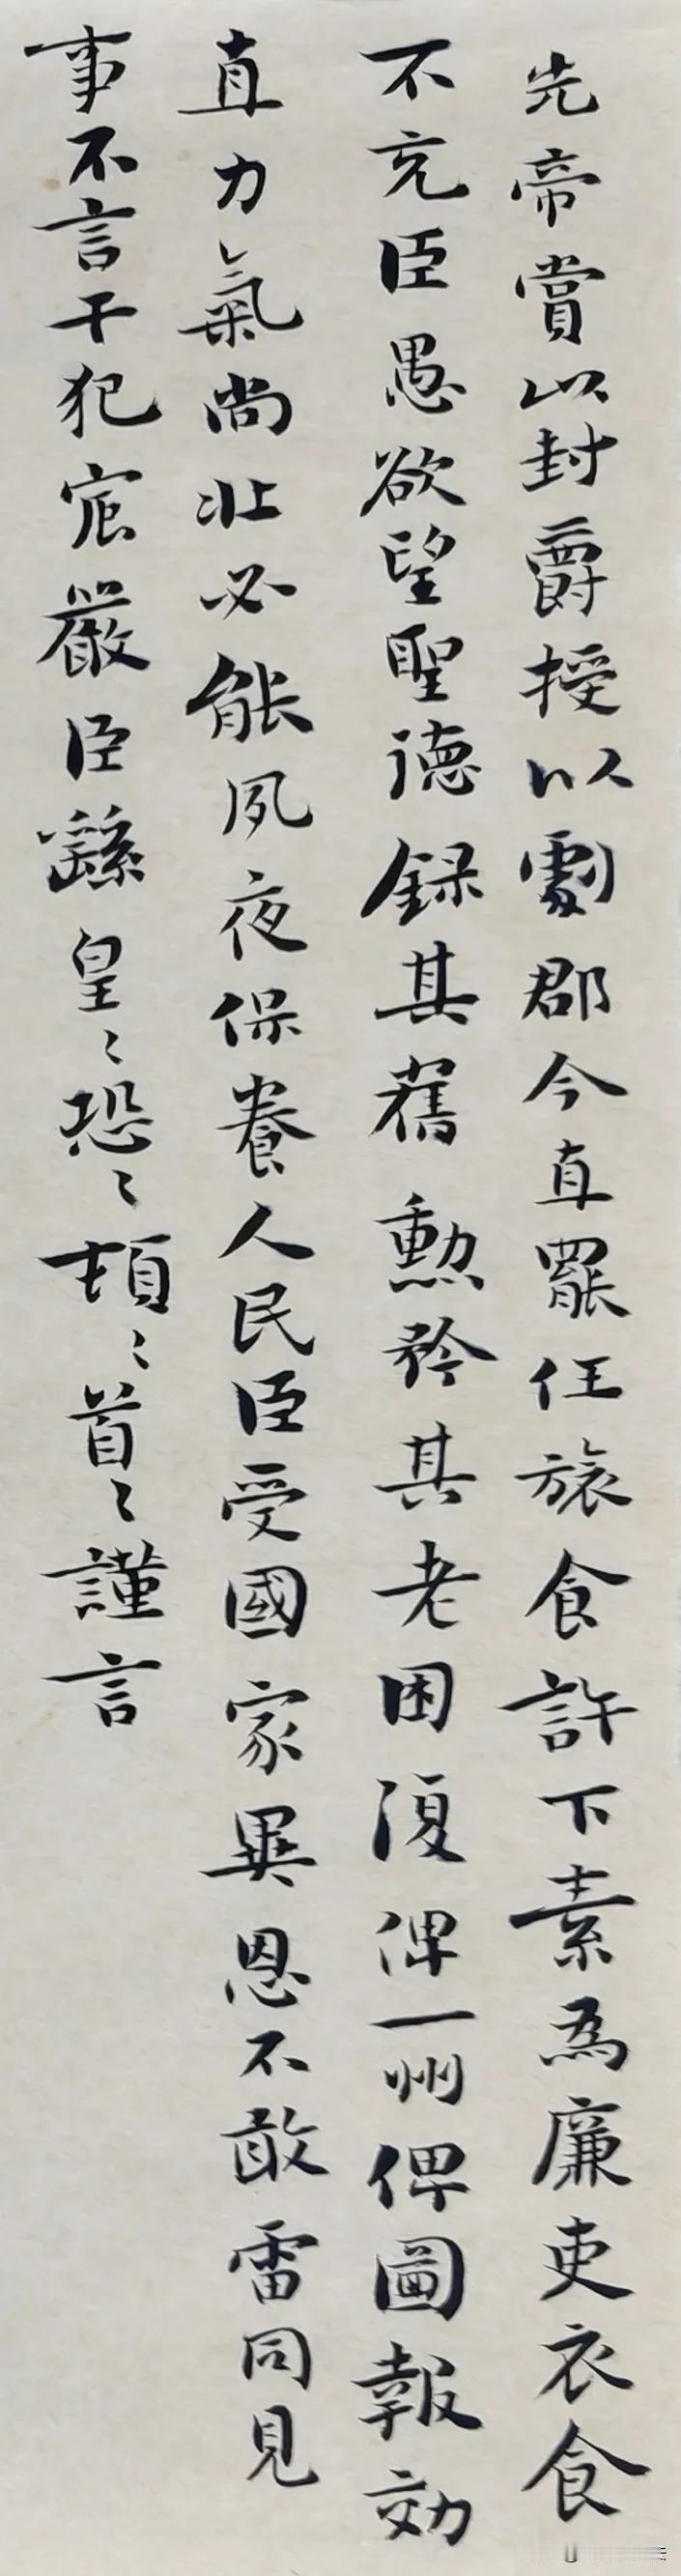 先帝賞以封爵授以劇郡今直罷任旅食許下素為廉吏衣食
不充臣愚欲望聖德錄其舊勳矜其老困復俾一州俾圖報効
直力氣尚壯必能夙夜保養人民臣受國家異恩不敢雷同見
事不言干犯宸嚴臣繇皇〻恐〻頓〻首〻謹言